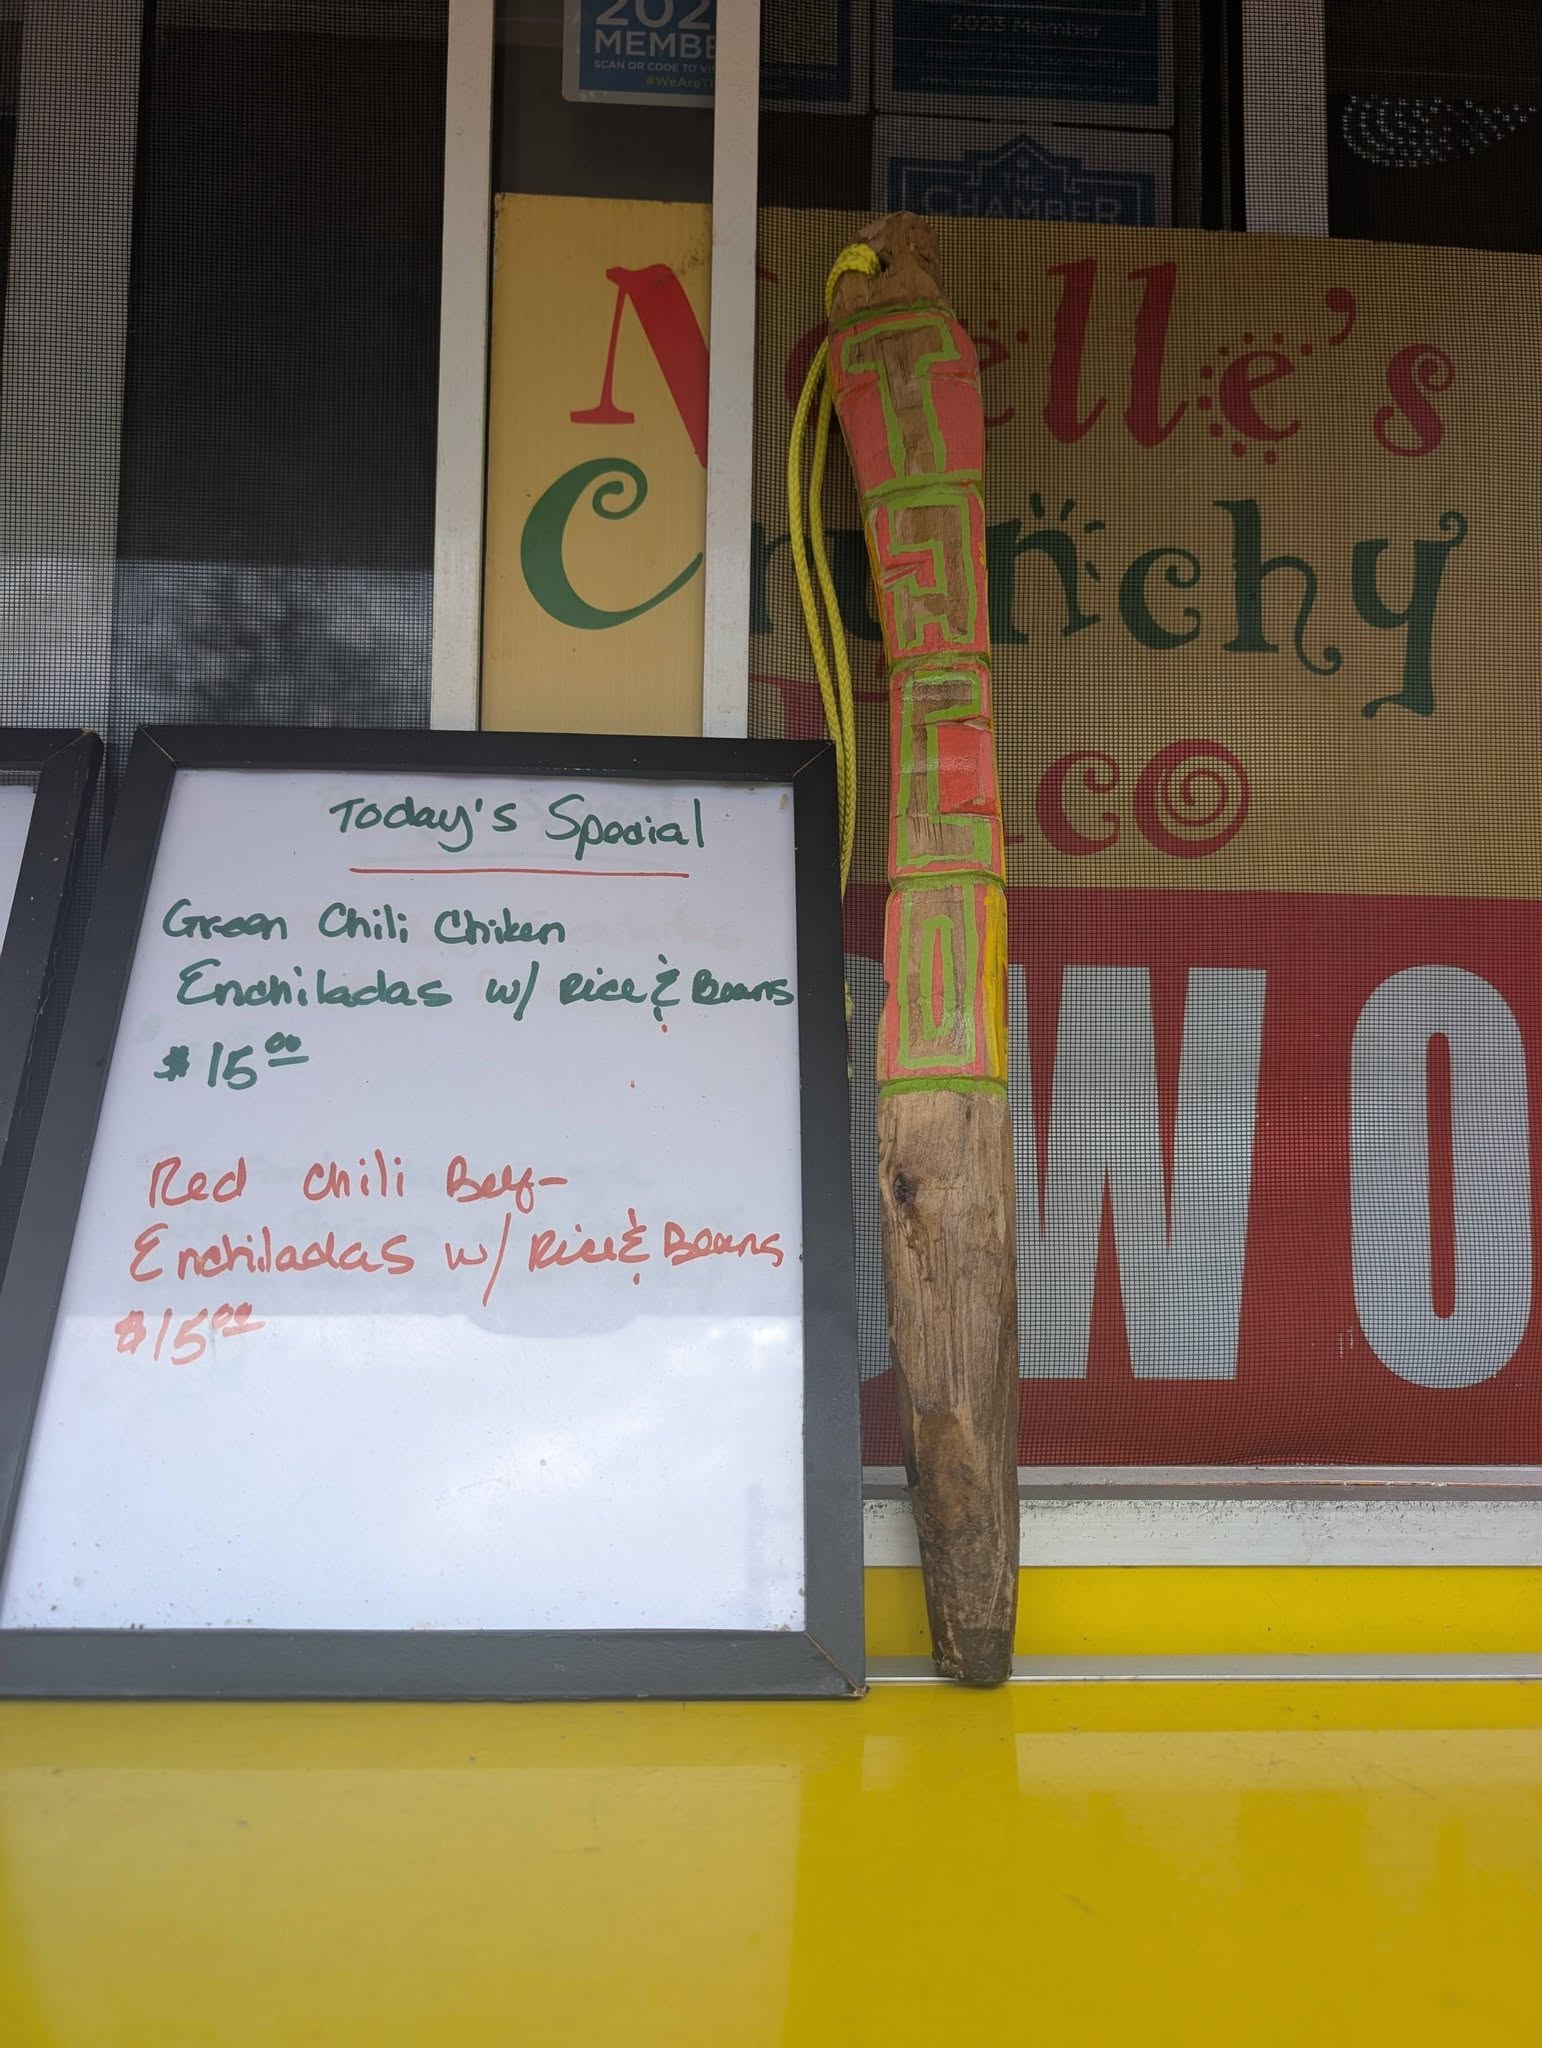 202
MEMBE
SCAN QR CODE TO VI
#WeAreTh
2023 Member
THE
CHAMBER
Noelle's
Crunchy
Taco
WO
TACO
Today's Special
Green Chili Chiken
Enchiladas w/ Rice & Beans
$15.00
Red Chili Beef
Enchiladas w/ Rice & Beans
$15.00